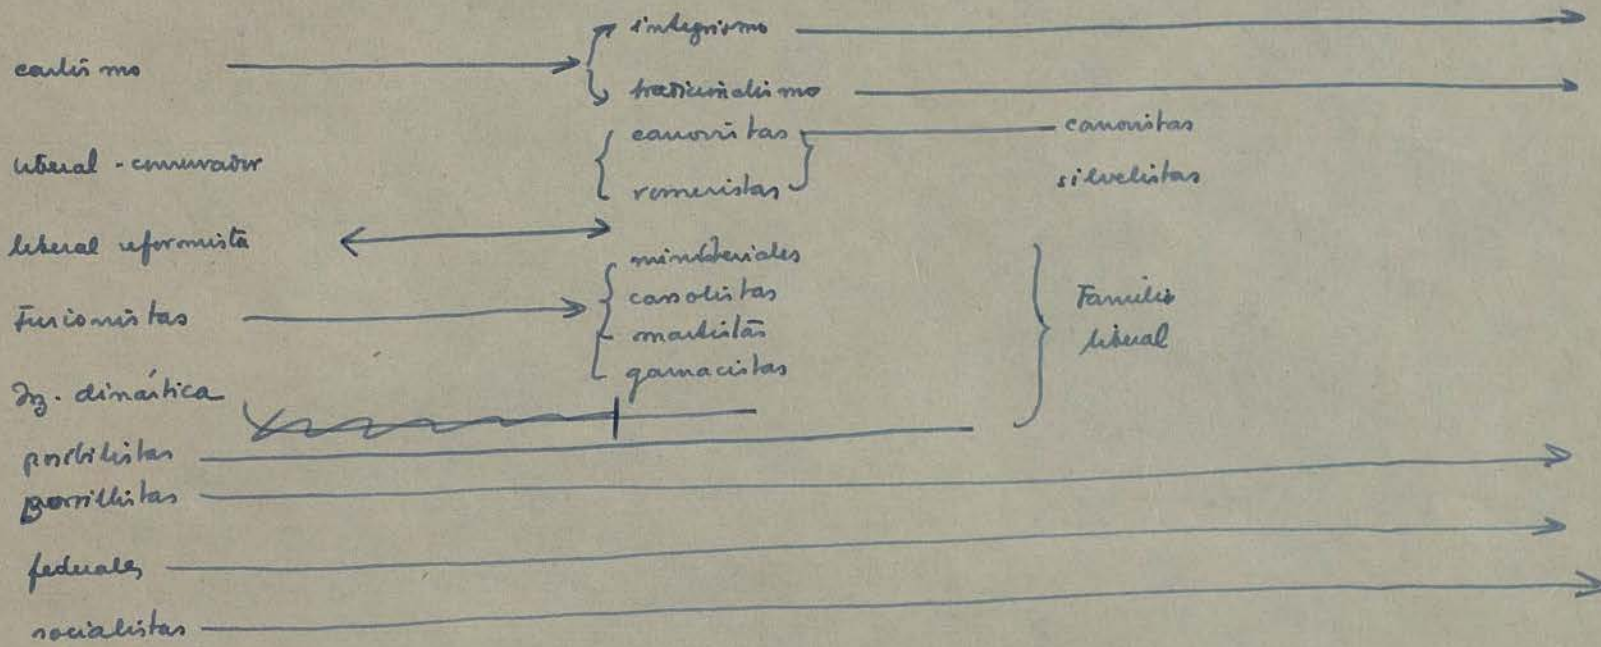 carlismo
integrismo
tradicionalismo
liberal - conservador
canovistas
romeristas
canovistas
silvelistas
liberal reformista
Fusionistas
ministeriales
cassolistas
martistas
gamacistas
Familia
liberal
Izq. dinástica
posibilistas
zorrillistas
federales
socialistas